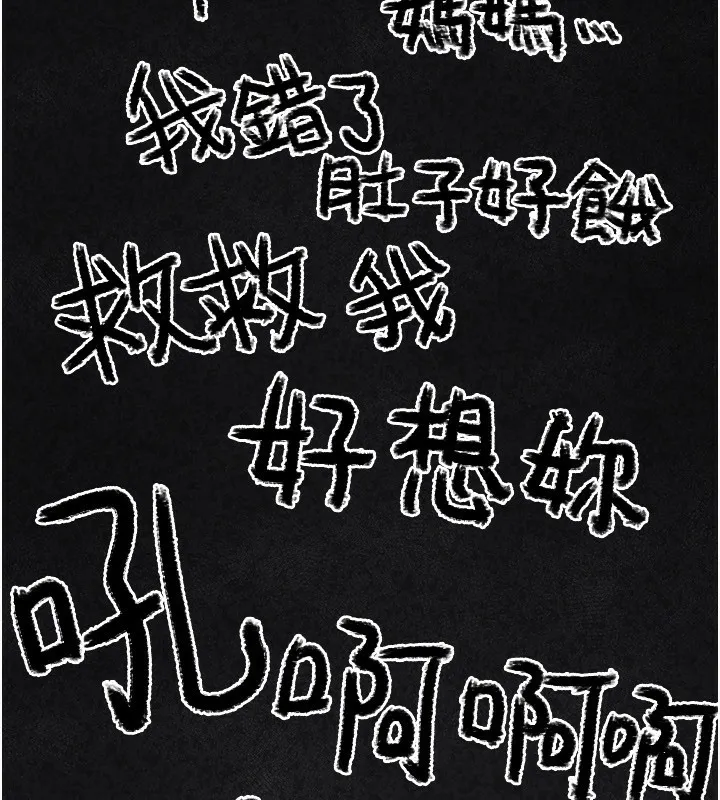 媽媽...
我錯了
肚子好餓
救救我
好想妳
吼啊啊啊